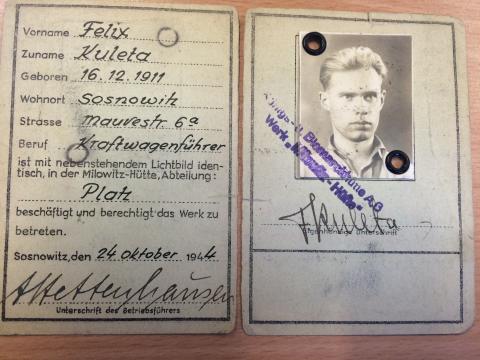 Vorname Felix
Zuname Kuleta
Geboren 16.12.1911
Wohnort Sosnowitz
Strasse Mauvestr. 6a
Beruf Kraftwagenführer
ist mit nebenstehendem Lichtbild iden-
tisch, in der Milowitz-Hütte, Abteilung:
Platz
beschäftigt und berechtigt das Werk zu
betreten.
Sosnowitz, den 24. Oktober 1944
Unterschrift des Betriebsführers
Königs- u. Bismarckhütte A.G
Werk "Milowitz-Hütte"
FKuleta
Eigenhändige Unterschrift